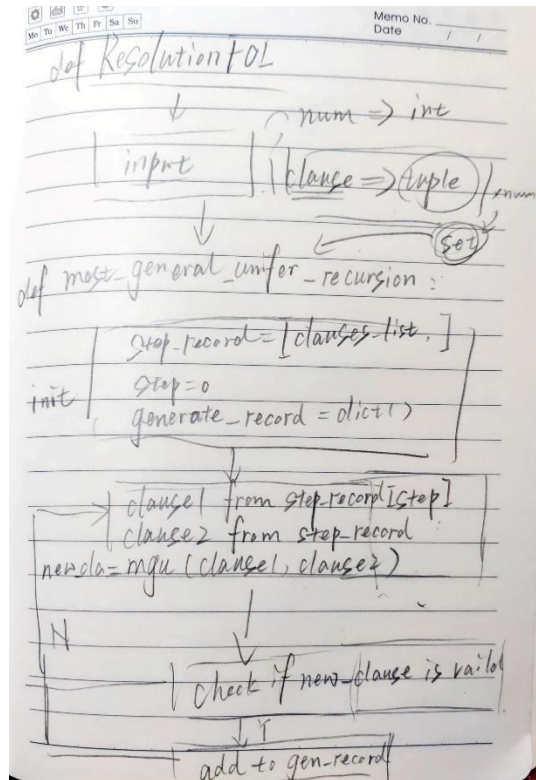 Memo No.
Mo Tu We Th Fr Sa Su
Date / /
def ResolutionFOL
num => int
input
clause => tuple
*num
set
def most_general_unifer_recursion :
init
step_record = [clauses_list, ]
step = 0
generate_record = dict()
clause1 from step_record[step]
clause2 from step_record
new_cla = mgu (clause1, clause2)
N
check if new_clause is vaild
Y
add to gen_record